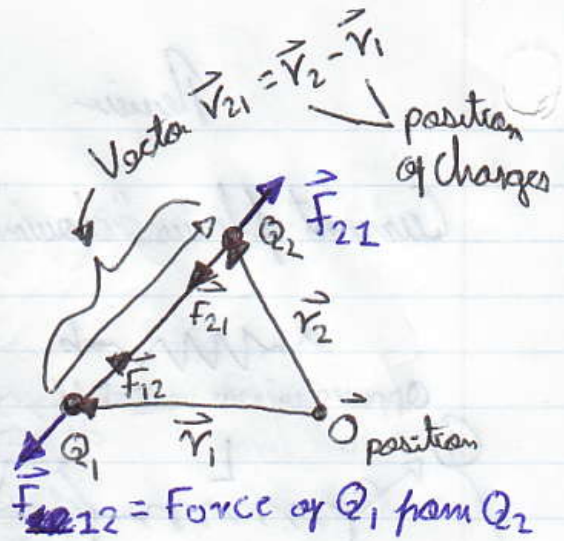 Vector r⃗21 = r⃗2 - r⃗1
position
of charges
F⃗21
Q2
F⃗21
r⃗2
F⃗12
Q1
r⃗1
O⃗ position
F⃗12 = Force of Q1 from Q2